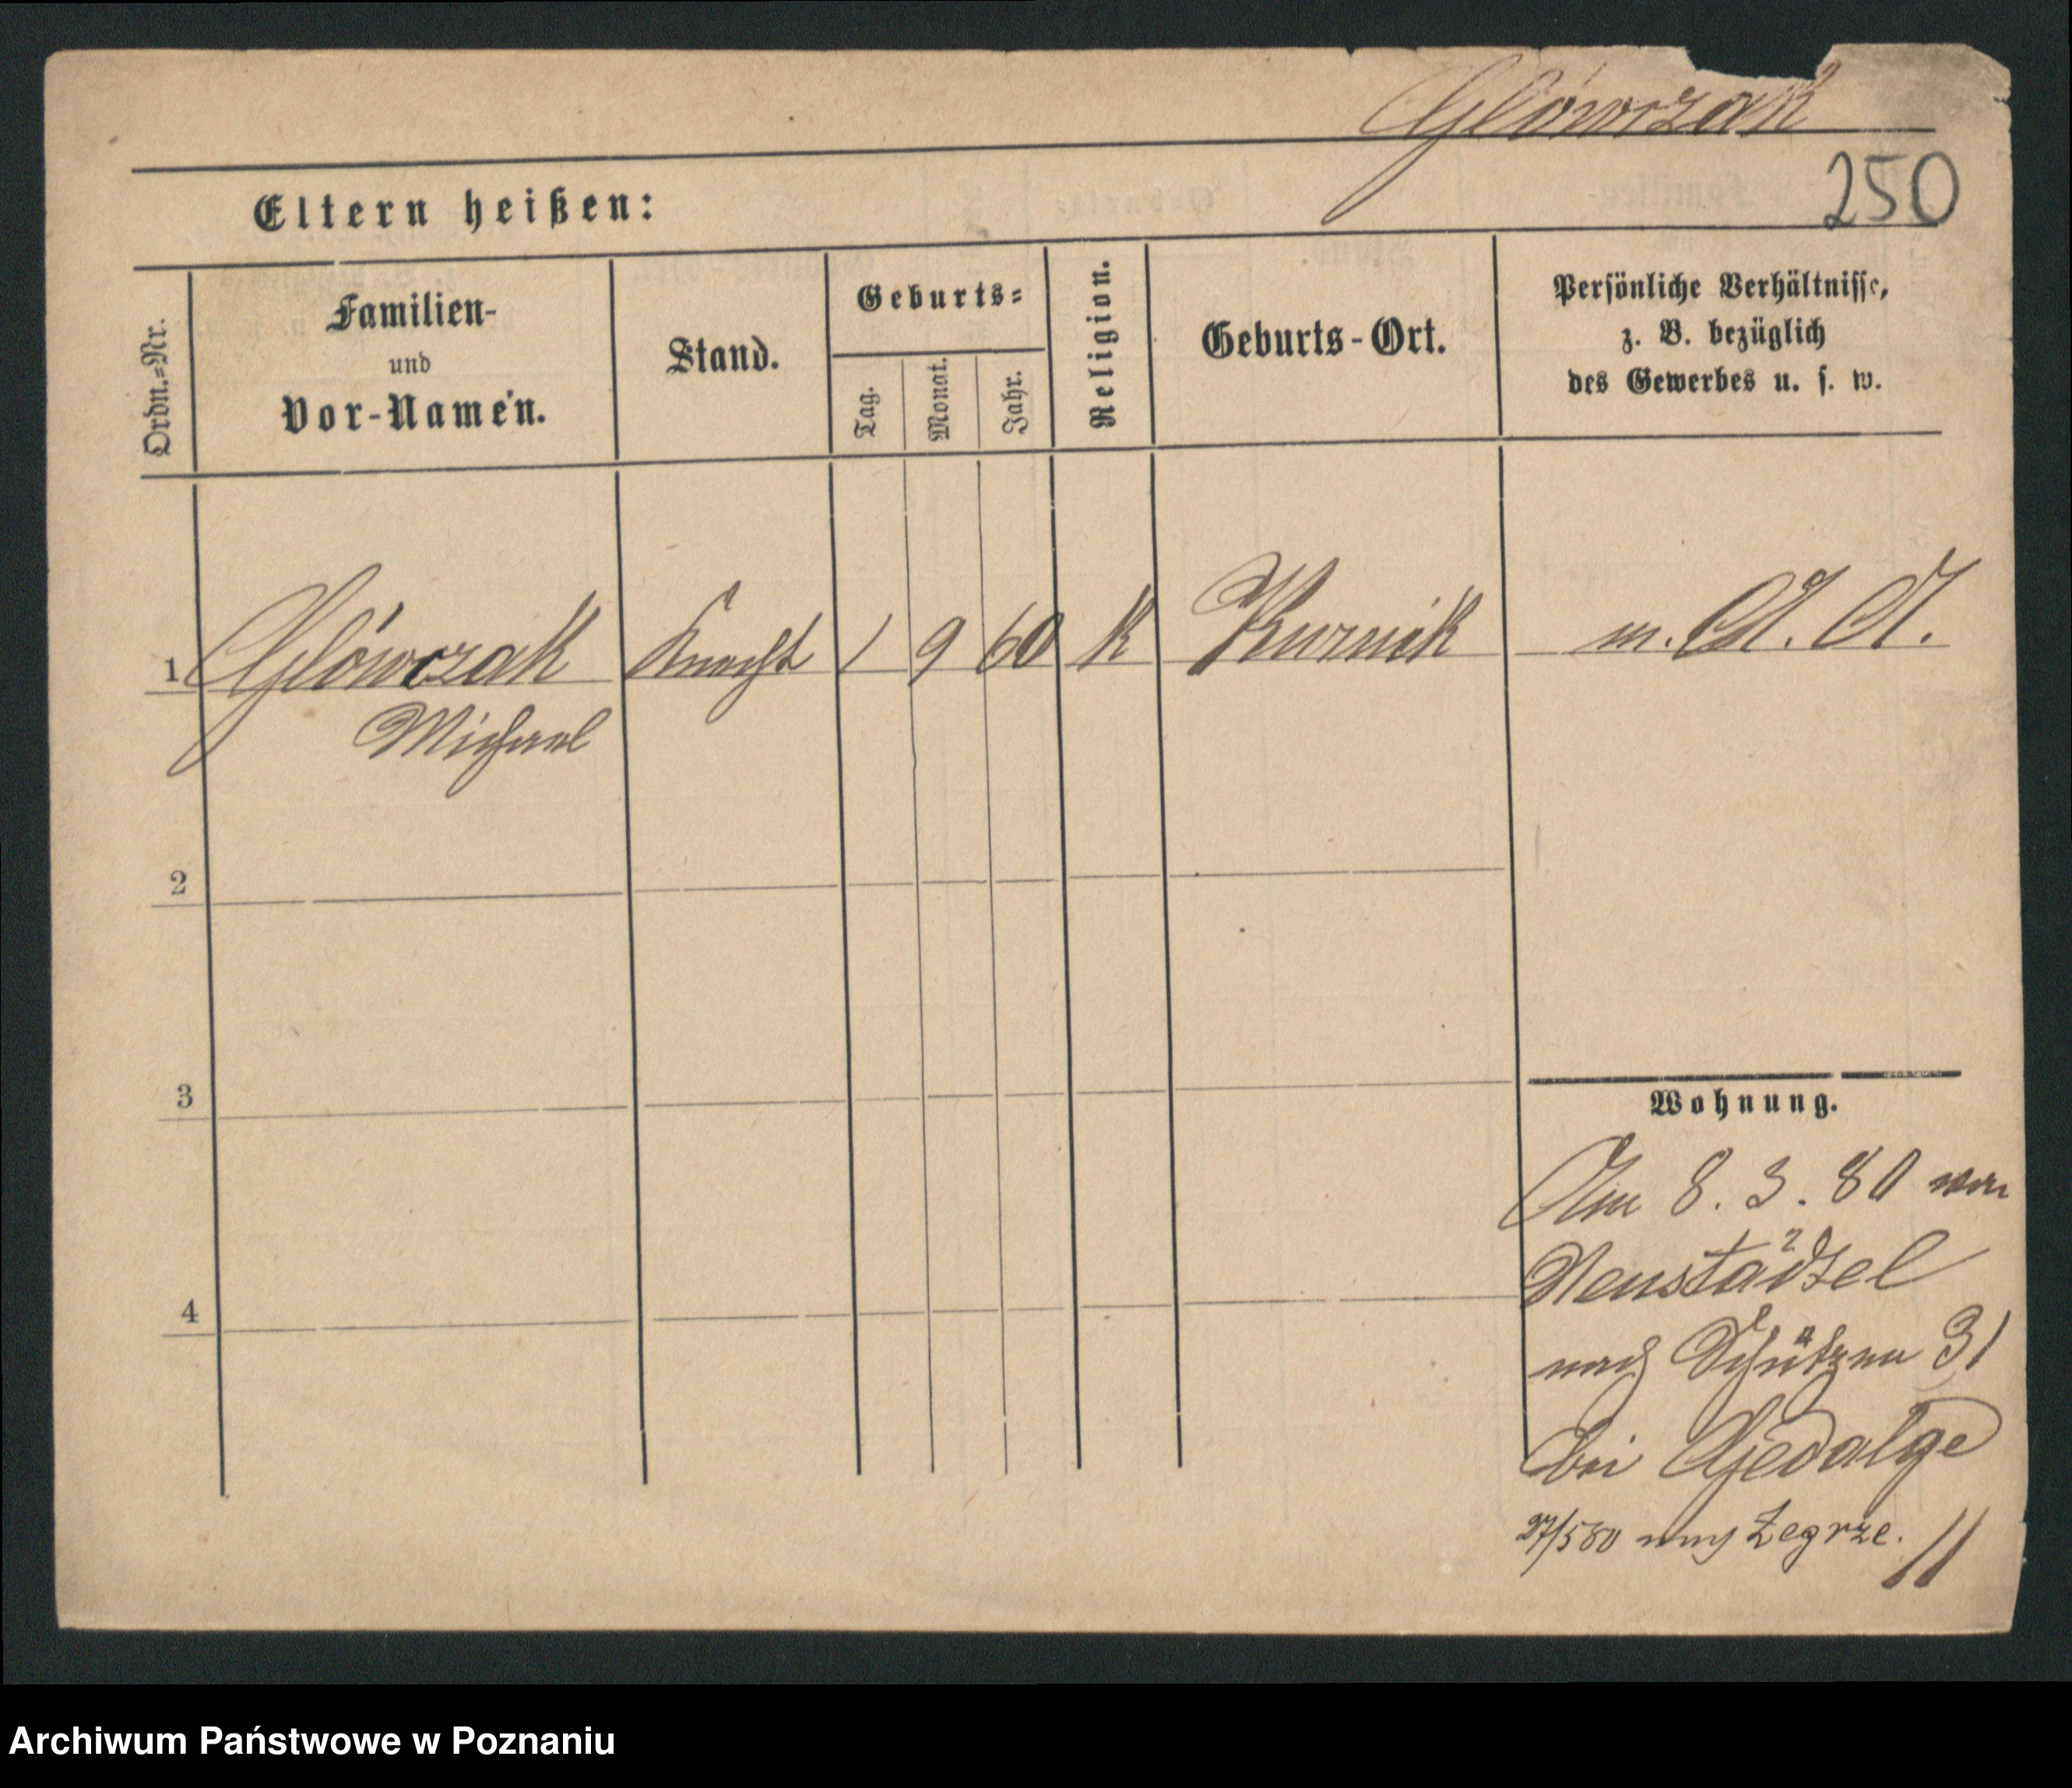 Główczak
250
Eltern heißen:
Ordn.=Nr.
Familien-
und
Vor-Namen.
Stand.
Geburts=
Tag.
Monat.
Jahr.
Religion.
Geburts-Ort.
Persönliche Verhältnisse,
z. B. bezüglich
des Gewerbes u. s. w.
1 Główczak Knecht 1 9 60 K Kurnik m. A. A.
Michael
2
3
4
Wohnung.
Am 8. 3. 80 von
Neustädtel
nach Schützen 31
bei Gedalge
27/5 80 nach Zegrze.
Archiwum Państwowe w Poznaniu